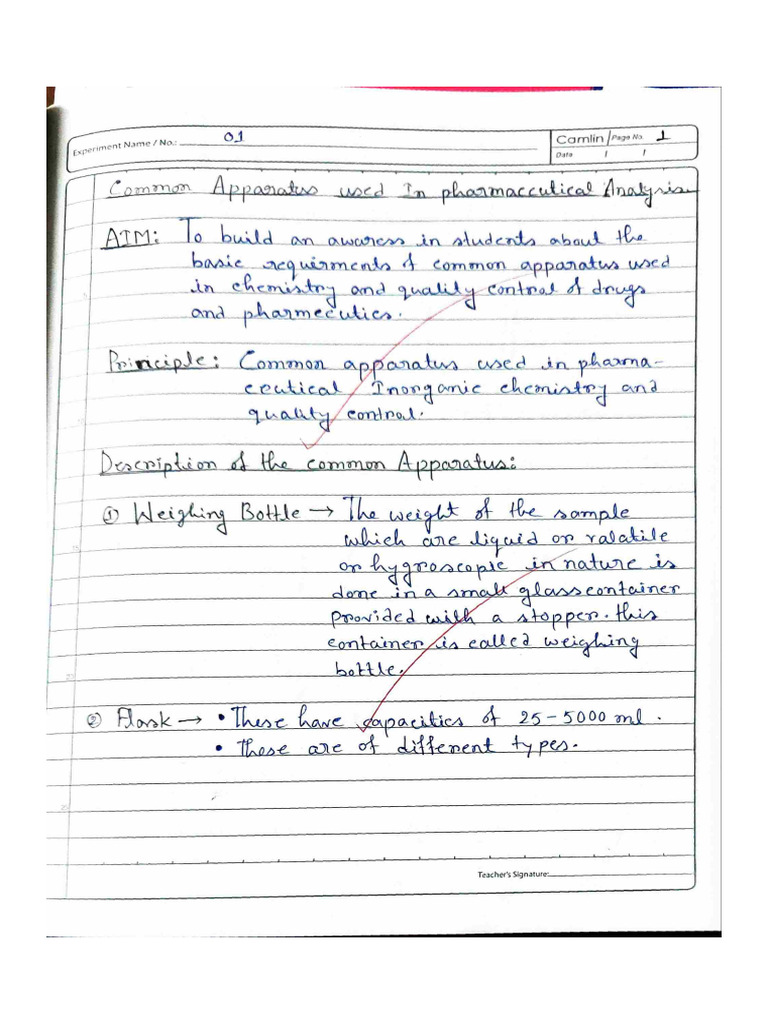 Experiment Name / No.: 01
Camlin Page No. 1
Date / /
Common Apparatus used In pharmaceutical Analysis
AIM: To build an awaress in students about the
basic requirments of common apparatus used
in chemistry and quality control of drugs
and pharmecutics.
Principle: Common apparatus used in pharma-
ceutical Inorganic chemistry and
quality control.
Description of the common Apparatus:
① Weighing Bottle → The weight of the sample
which are liquid or valatile
or hygroscopic in nature is
done in a small glass container
provided with a stopper. this
container is called weighing
bottle.
② Flask → • These have capacities of 25-5000 ml.
• These are of different types.
Teacher's Signature: